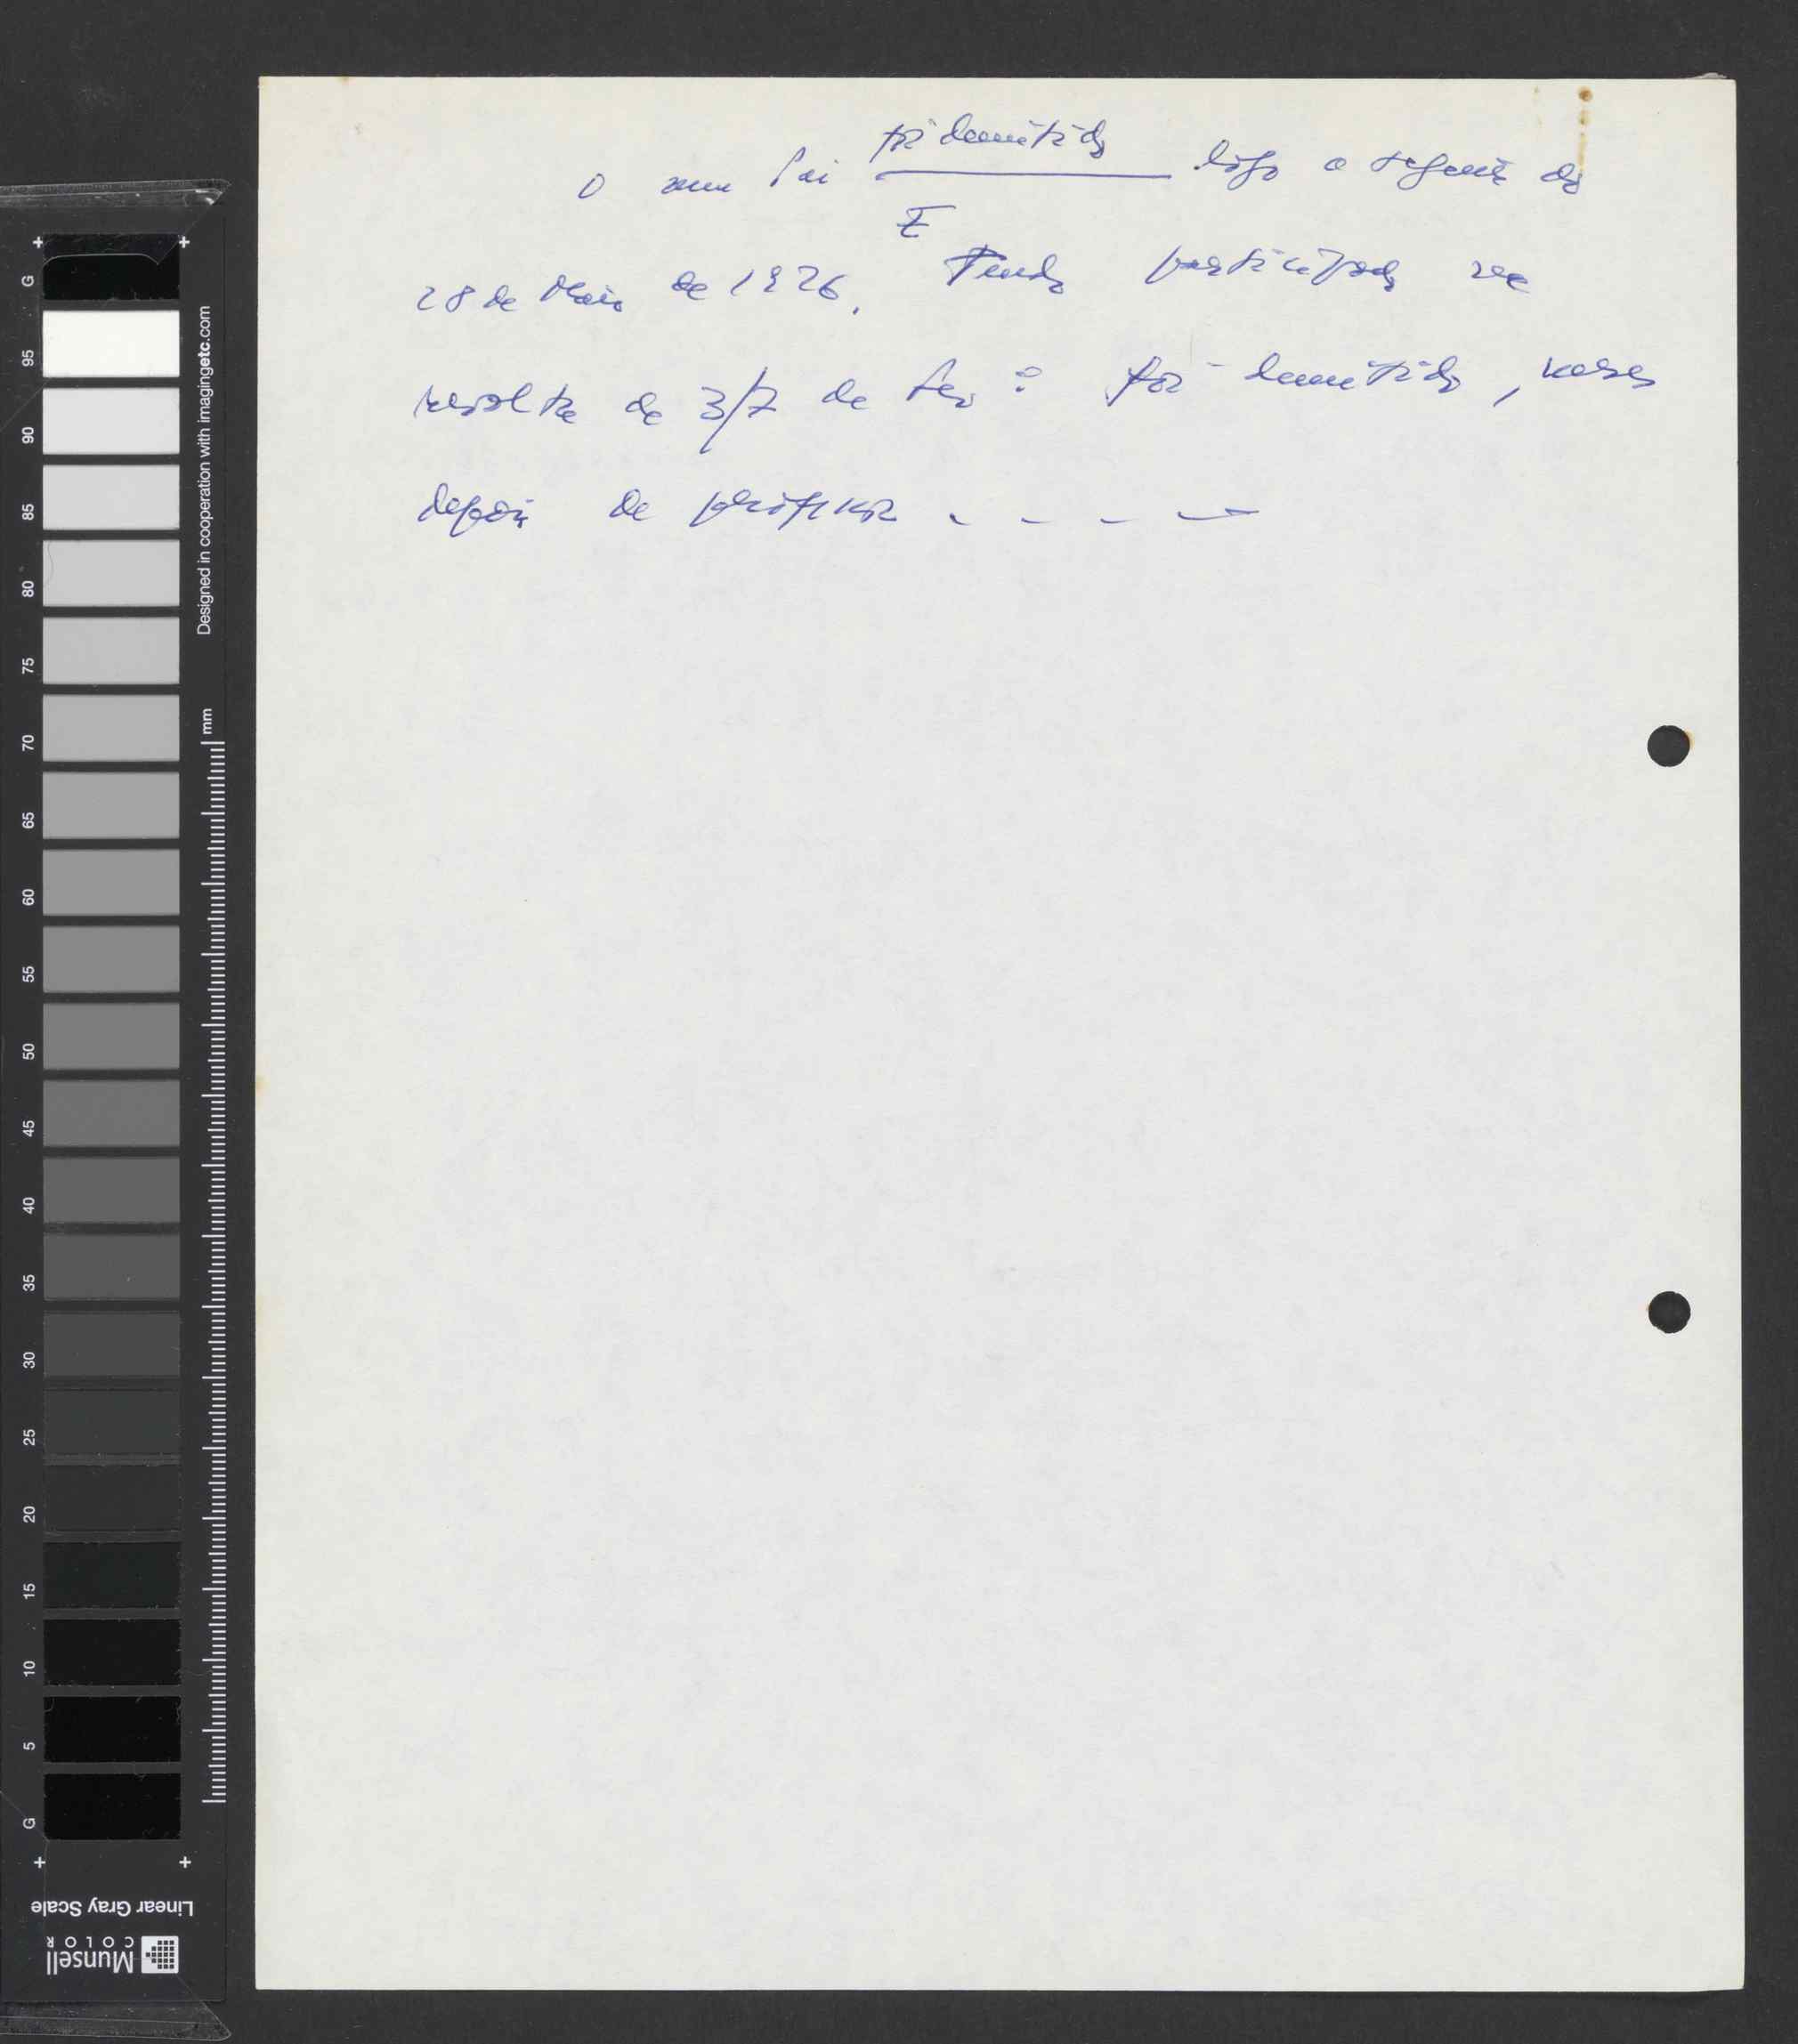 O meu Pai foi demitido logo a seguir ao
28 de Maio de 1926. E Tendo participado na
revolta de 3/7 de Fev.º foi demitido, vezes
depois de professor - - - -
Designed in cooperation with imagingetc.com
mm
G 95 90 85 80 75 70 65 60 55 50 45 40 35 30 25 20 15 10 5 G
Linear Gray Scale
Munsell
COLOR